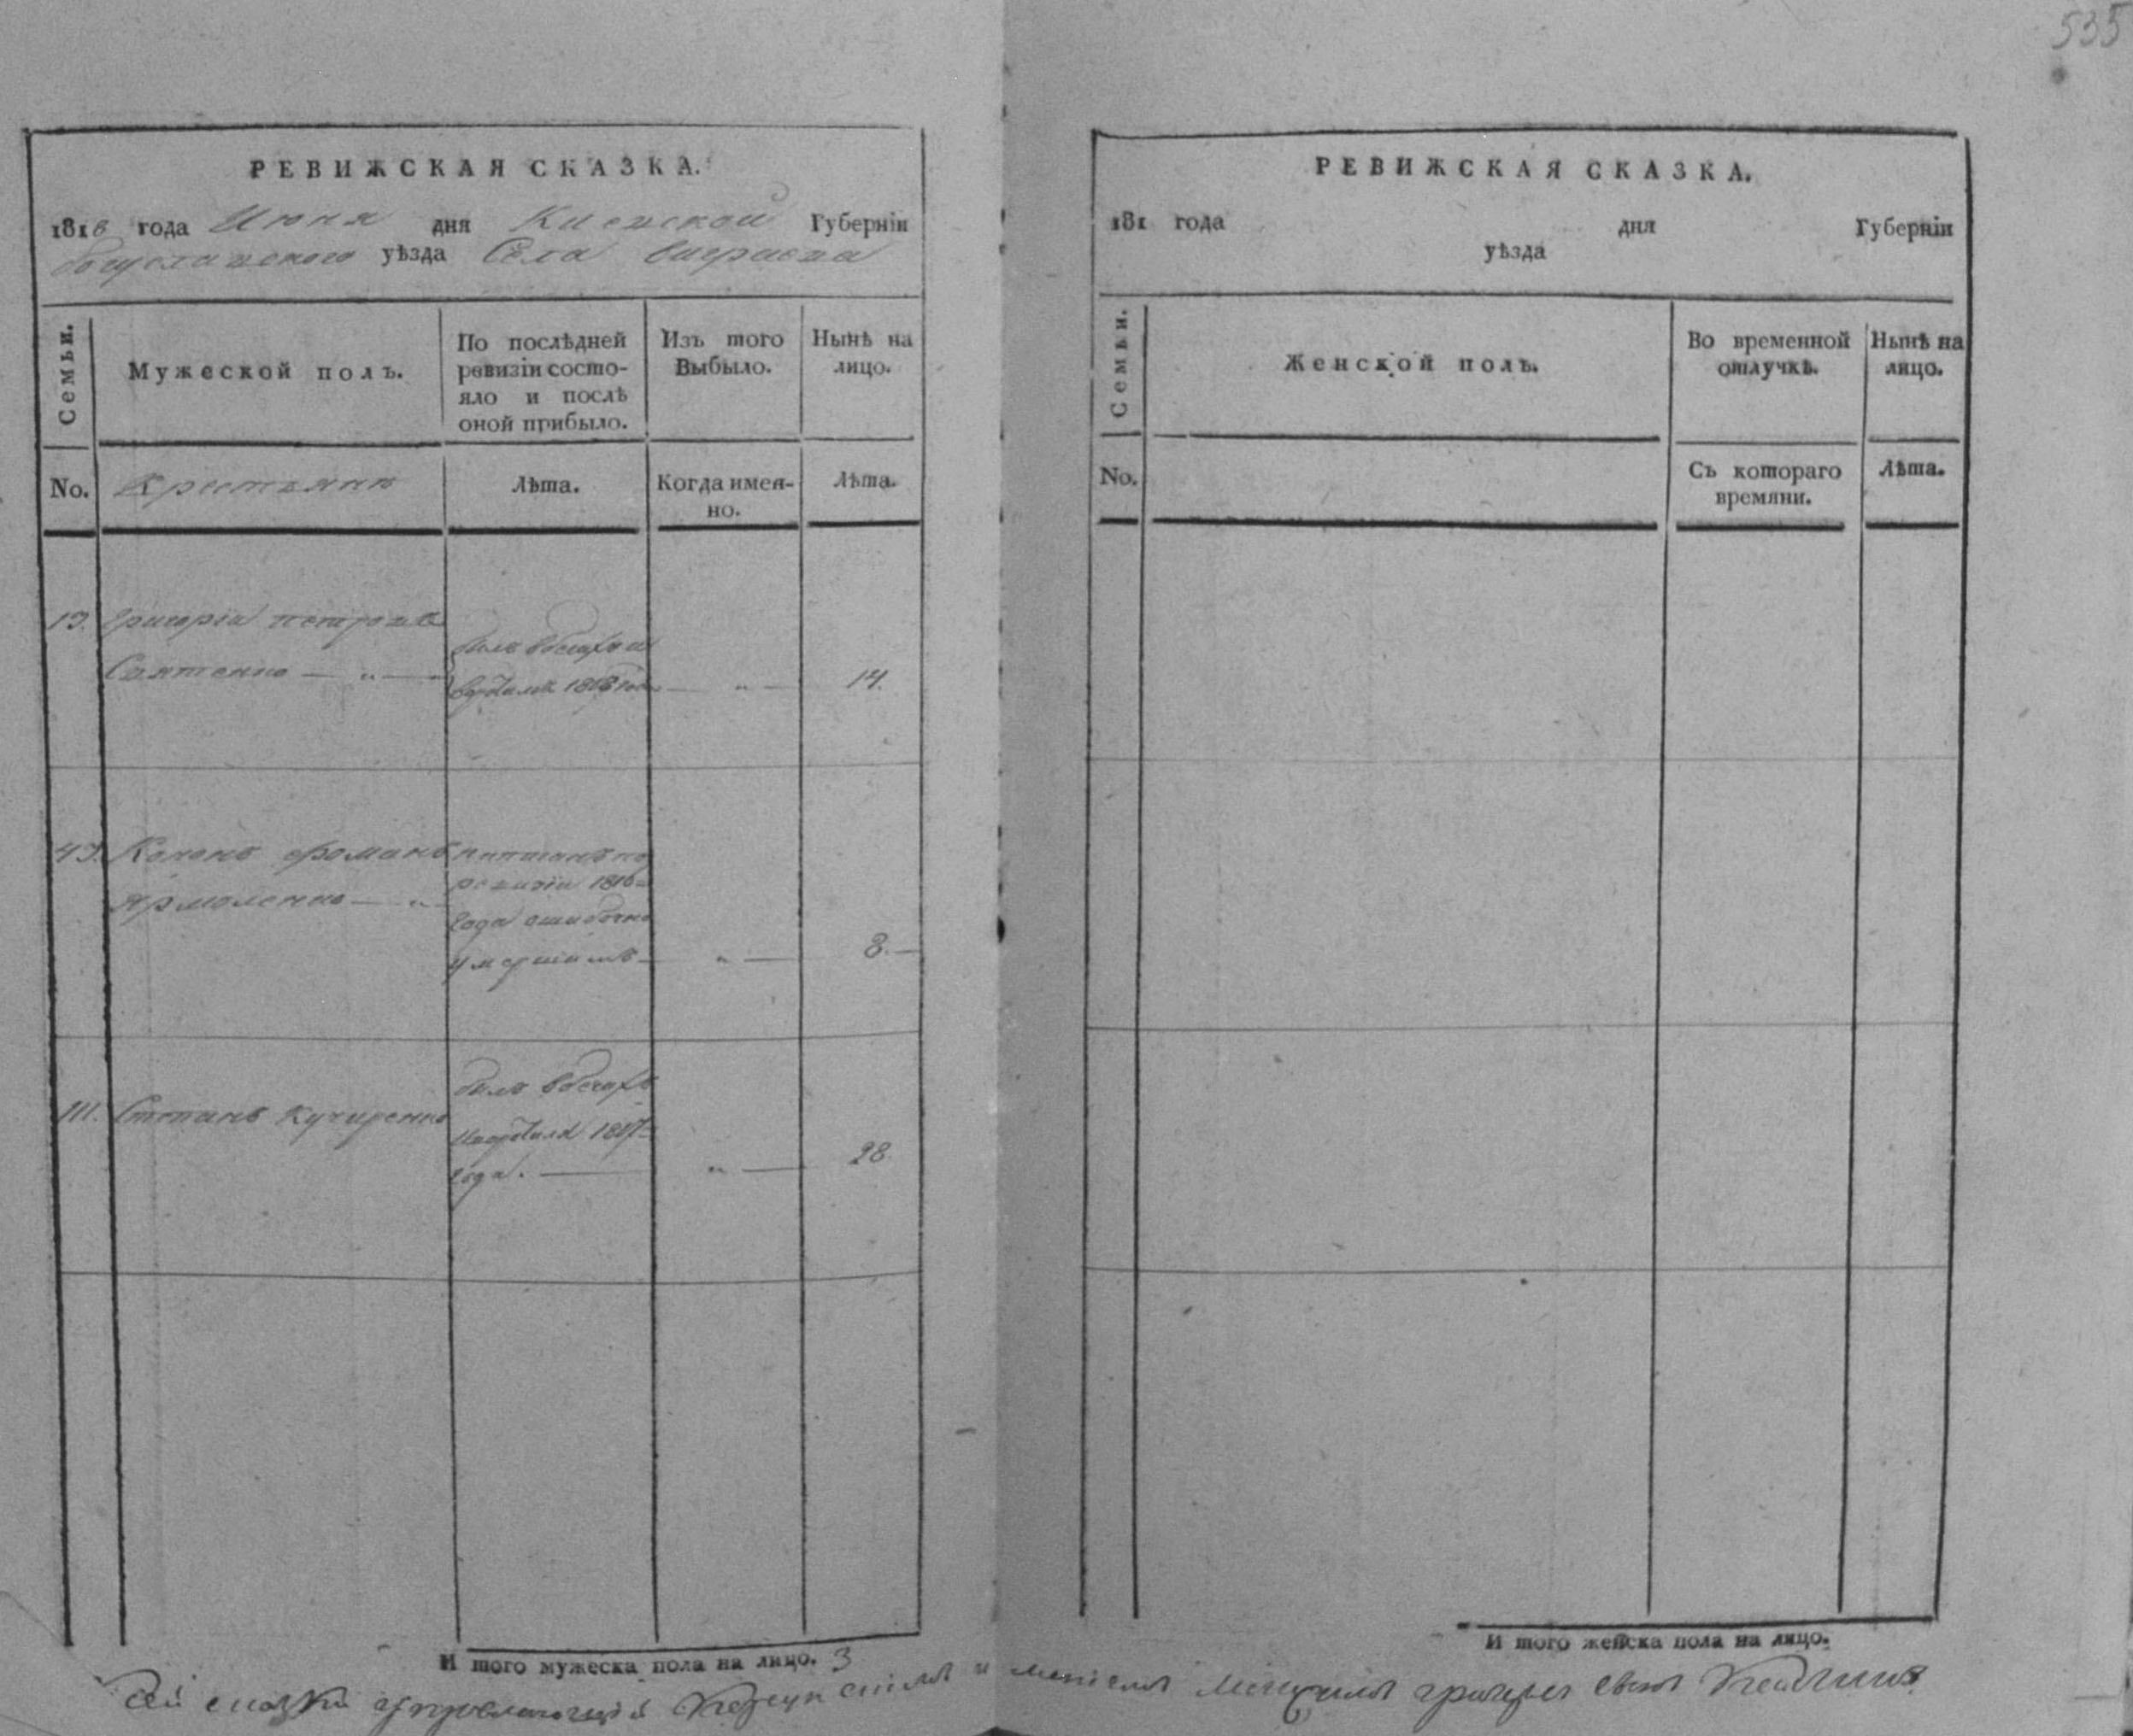 535
РЕВИЖСКАЯ СКАЗКА.
1818 года Июня дня Киевской Губерніи
Богуславского уѣзда Села
Семьи.
Мужеской полъ.
По послѣдней
ревизіи состо-
яло и послѣ
оной прибыло.
Изъ того
Выбыло.
Нынѣ на
лицо.
No.
Крестьянъ
Лѣта.
Когда имен-
но.
Лѣта.
13. Григорій Петровъ
былъ в бегахъ и
14.
43. Кононъ Романовъ
написанъ по
Ярмоленко
ревизіи 1816
года ошибочно
умершимъ
8.
111. Степанъ Кучеренко
былъ в бегахъ
года.
28
И того мужеска пола на лицо. 3
РЕВИЖСКАЯ СКАЗКА.
181 года дня Губерніи
уѣзда
Семьи.
Женской полъ.
Во временной
отлучкѣ.
Нынѣ на
лицо.
No.
Съ котораго
времяни.
Лѣта.
И того женска пола на лицо.